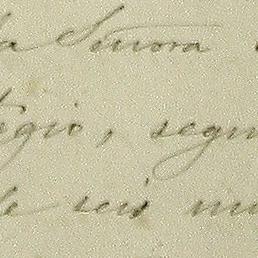 la Señora
egio, segun
de seis mu